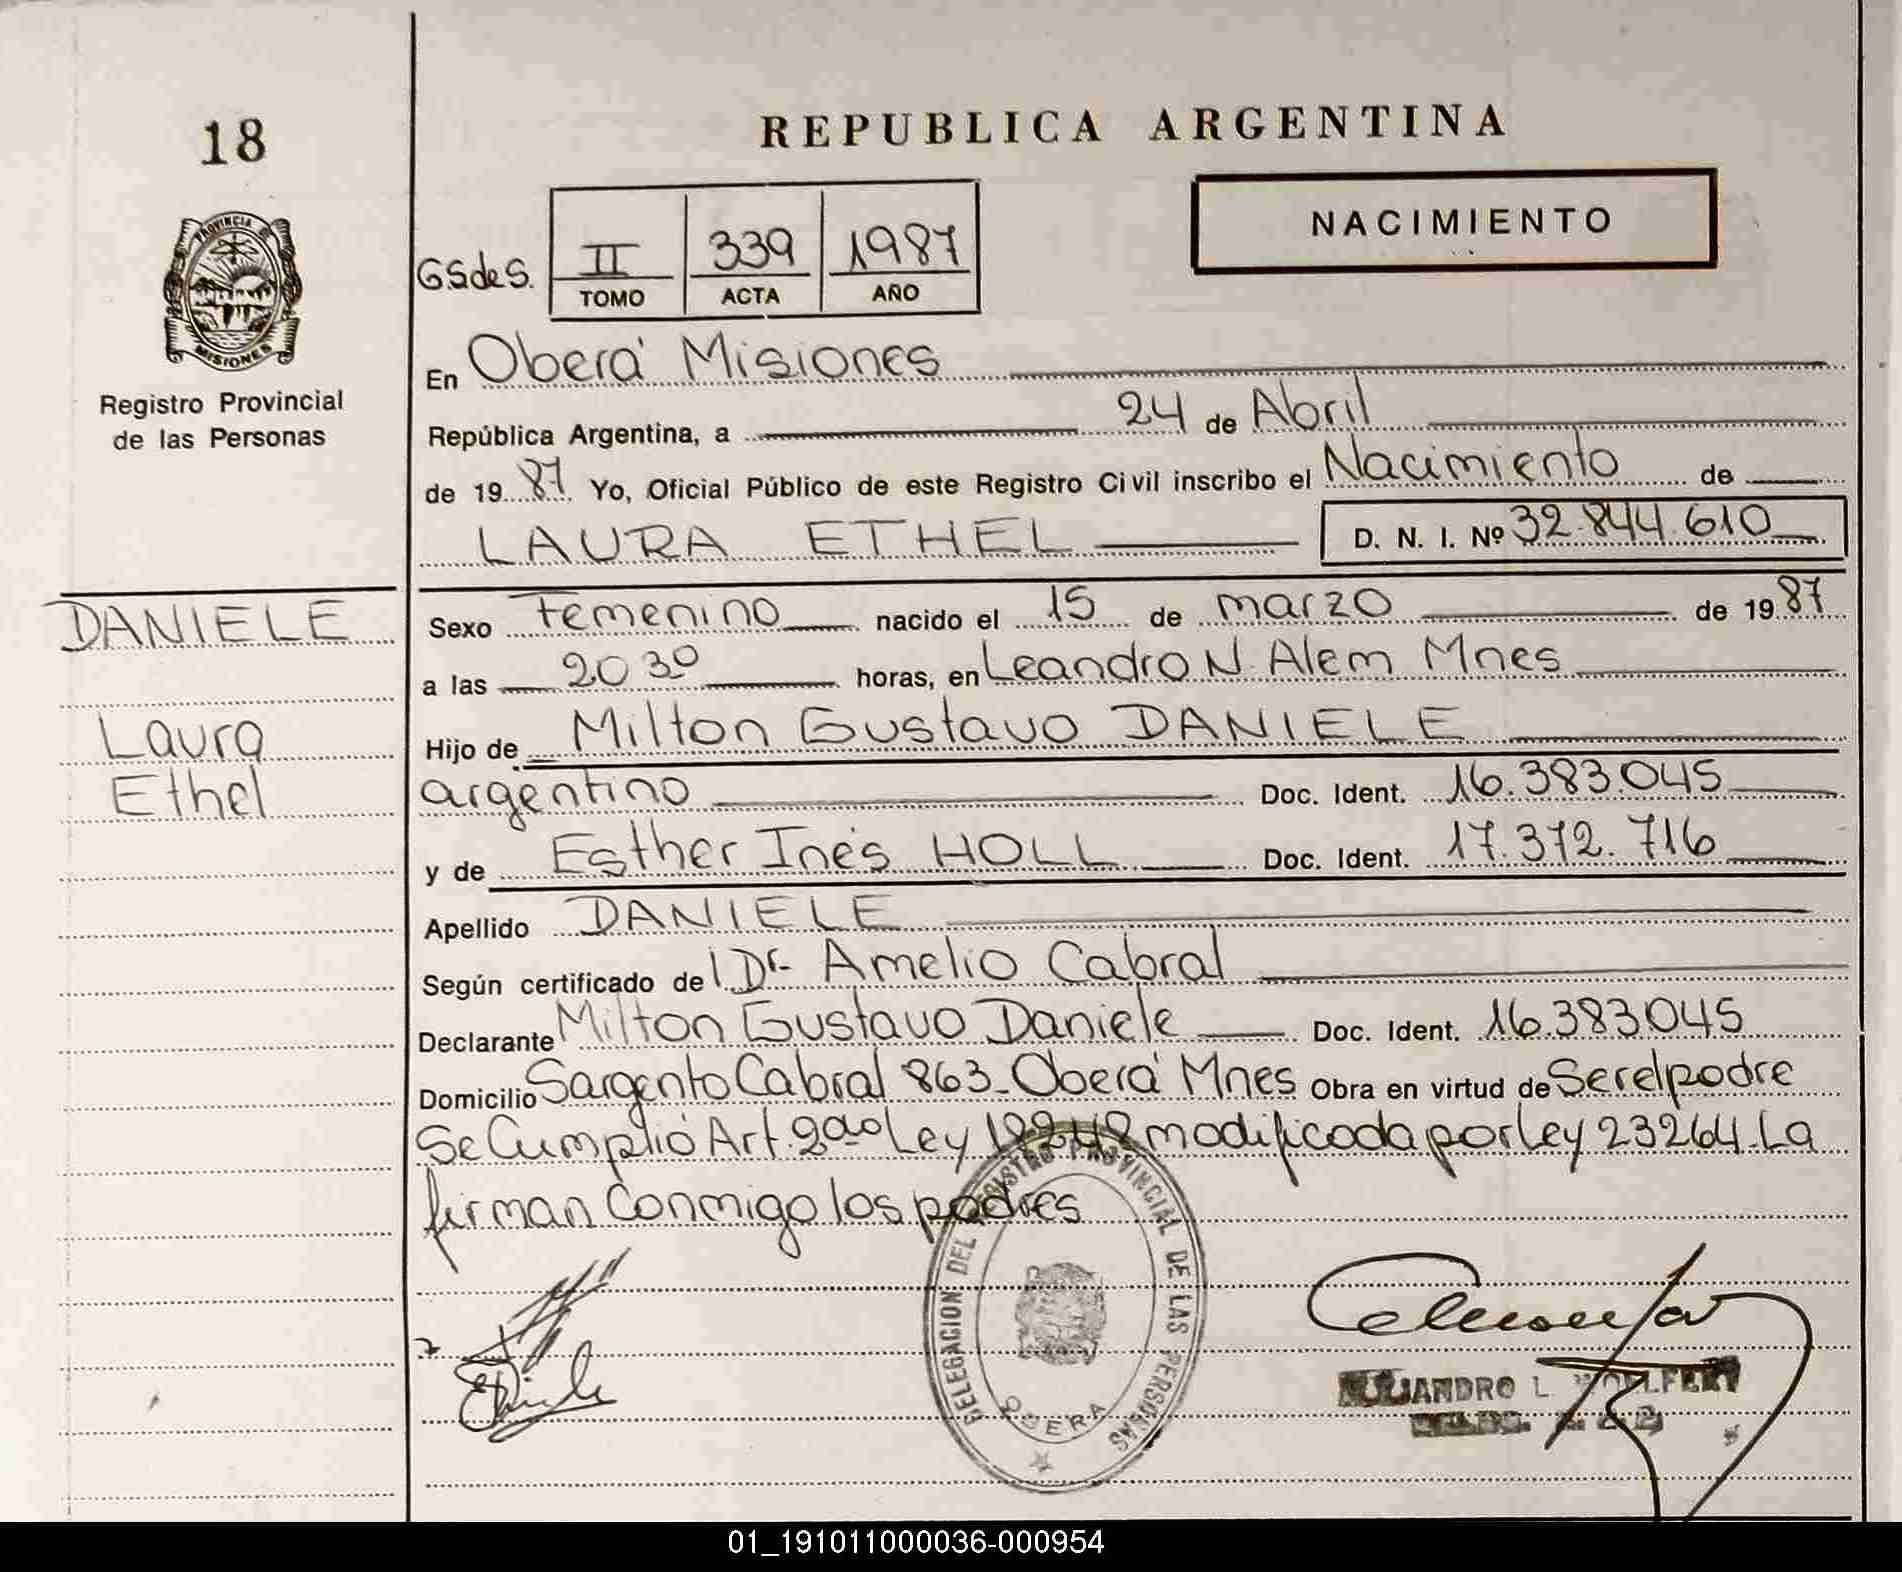 18
REPUBLICA ARGENTINA
PROVINCIA DE
MISIONES
Registro Provincial
de las Personas
NACIMIENTO
GSdeS.
II 339 1987
TOMO ACTA AÑO
En Oberá Misiones
República Argentina, a 24 de Abril
de 1987 Yo, Oficial Público de este Registro Civil inscribo el Nacimiento de
LAURA ETHEL D. N. I. Nº 32.844.610
DANIELE
Laura
Ethel
Sexo Femenino nacido el 15 de marzo de 1987
a las 20 30 horas, en Leandro N. Alem Mnes
Hijo de Milton Gustavo DANIELE
argentino Doc. Ident. 16.383.045
y de Esther Inés HOLL Doc. Ident. 17.372.716
Apellido DANIELE
Según certificado del Dr. Amelio Cabral
Declarante Milton Gustavo Daniele Doc. Ident. 16.383.045
Domicilio Sargento Cabral 863_ Oberá Mnes Obra en virtud de Ser el padre
Se Cumplió Art. Ley modificada por Ley 23264. La
firman Conmigo los padres
DELEGACION DEL REGISTRO PROVINCIAL DE LAS PERSONAS
OBERA
L.
01_191011000036-000954